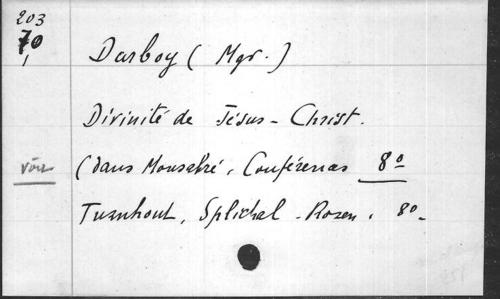 203
70
Darboy (Mgr.)
Divinité de Jésus-Christ.
voir (dans Monsabré, Conférences 8º
Turnhout, Splichal-Roosen, 8º